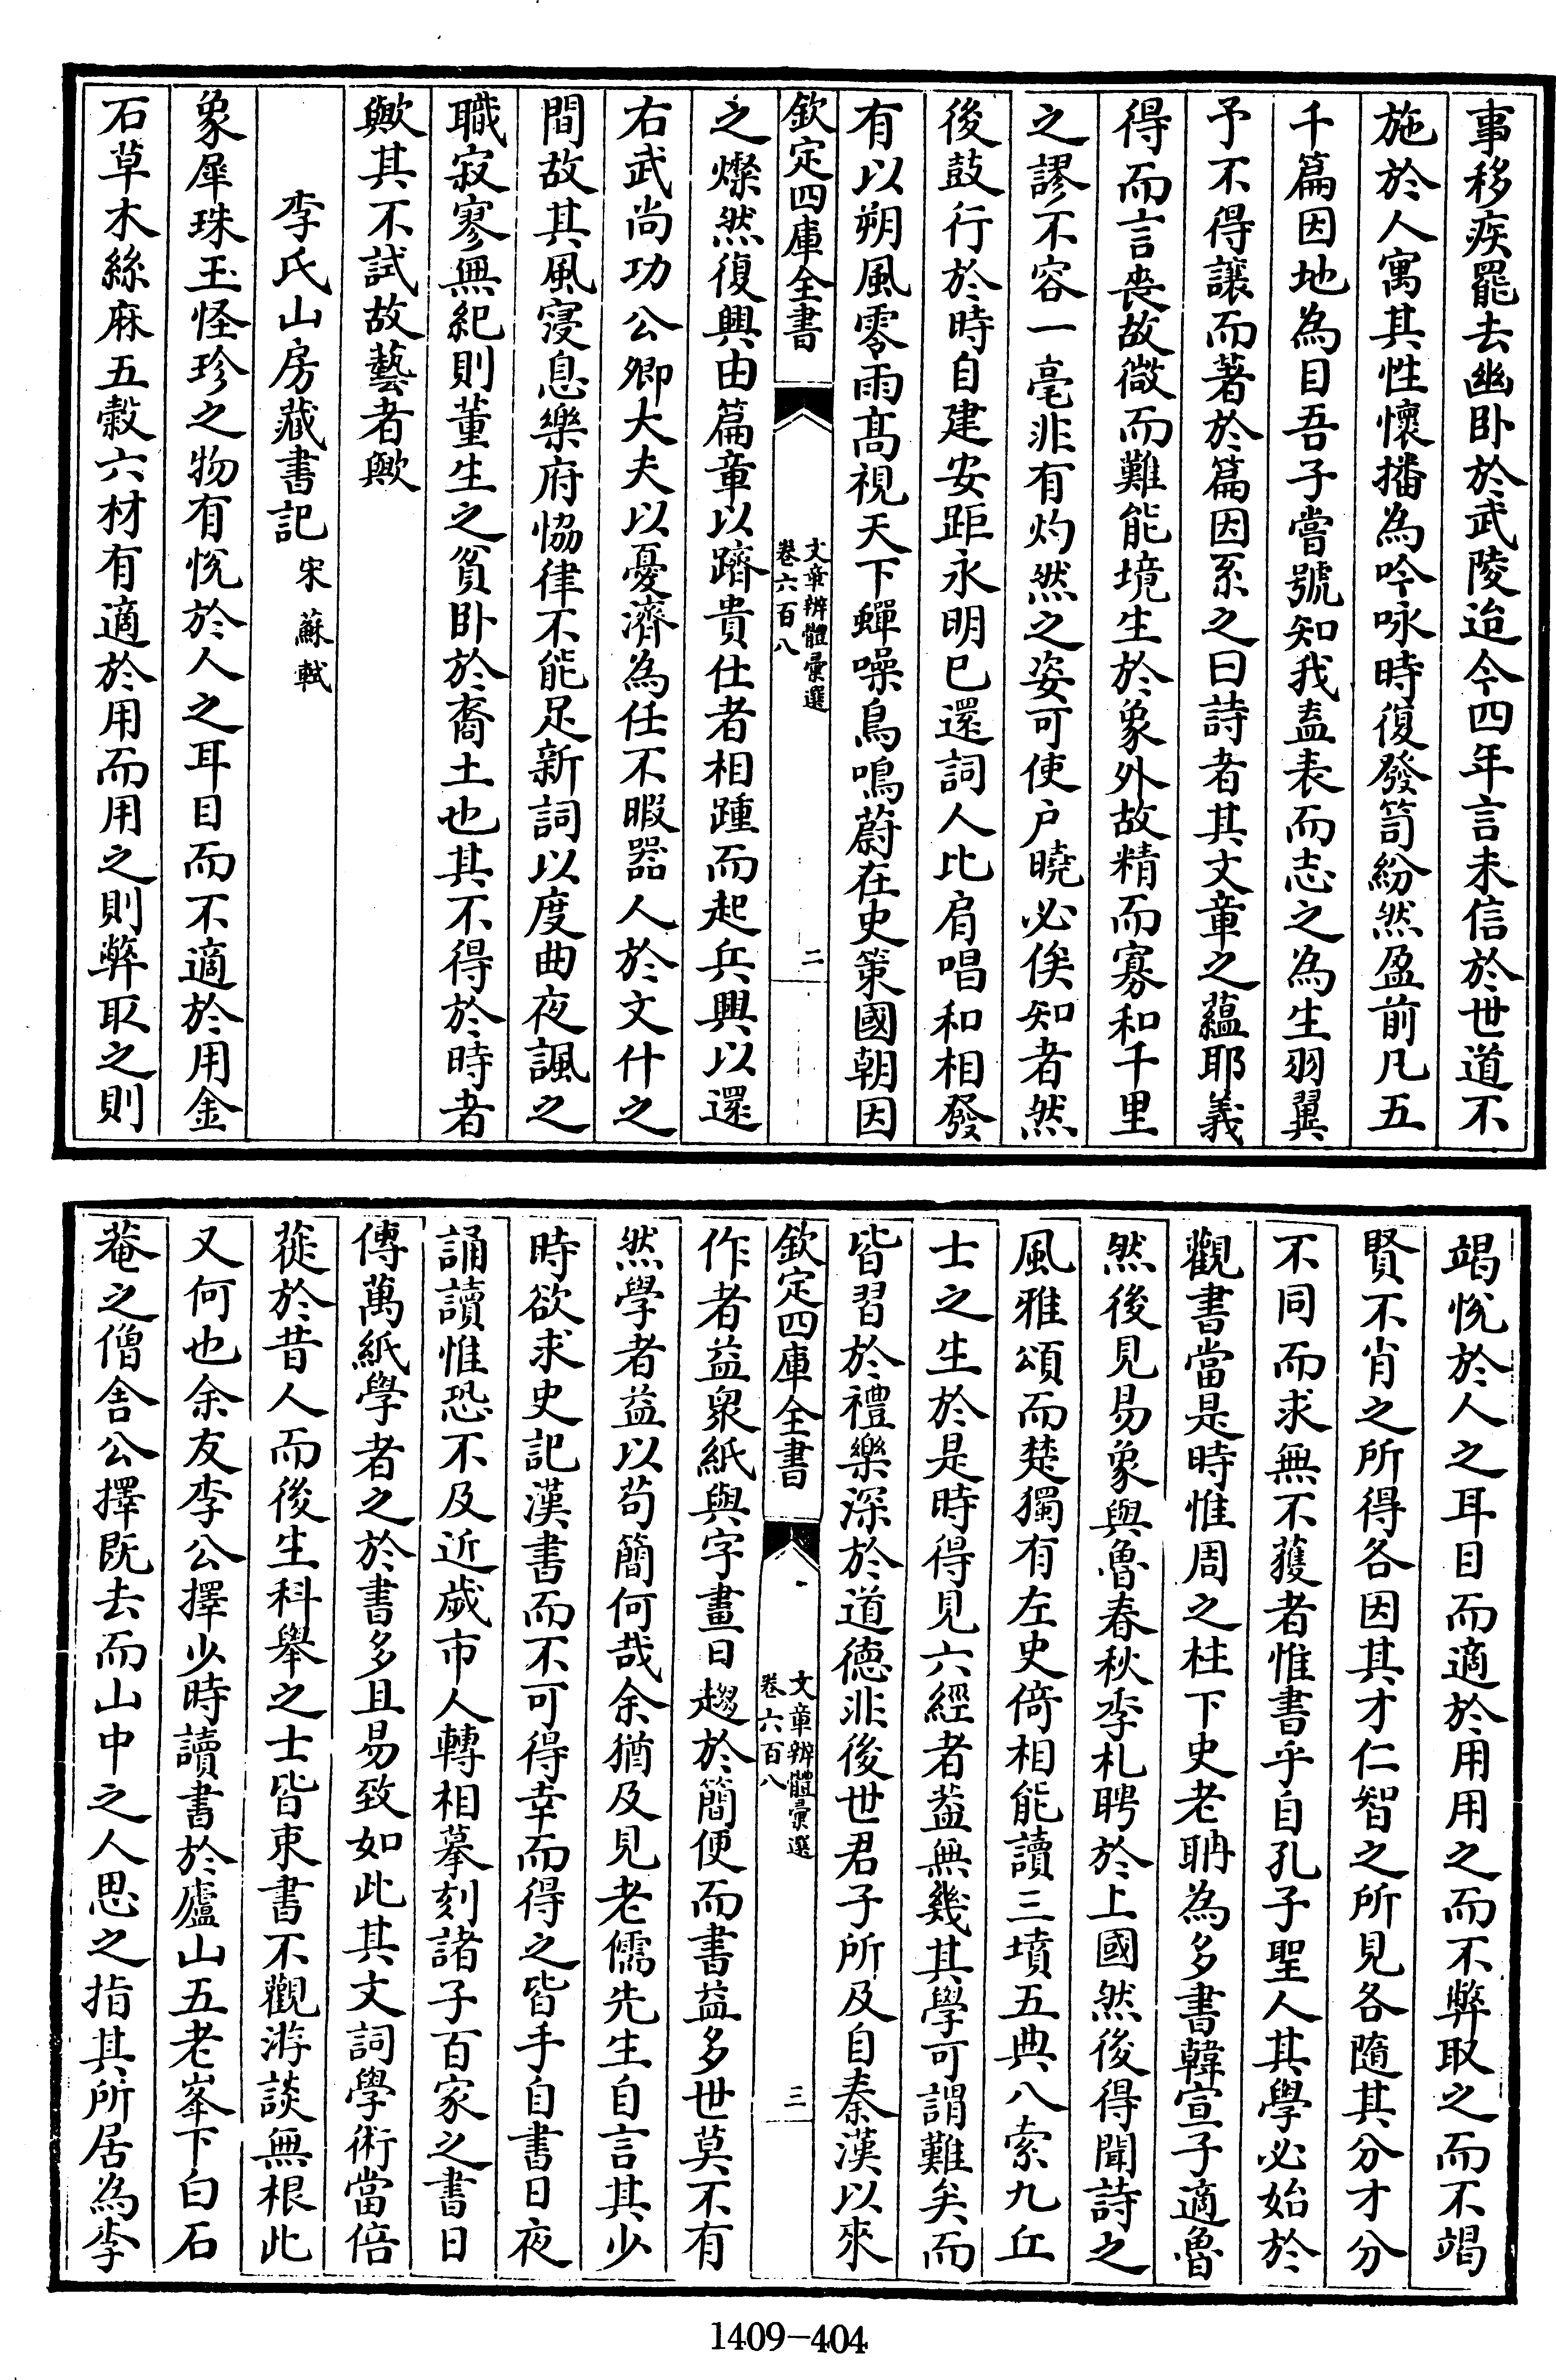 事移疾罷去幽卧於武陵迨今四年言未信於世道不
施於人寓其性懷播為吟咏時復發笥紛然盈前凡五
千篇因地為目吾子嘗號知我盍表而志之為生羽翼
予不得讓而著於篇因系之曰詩者其文章之藴耶義
得而言喪故微而難能境生於象外故精而寡和千里
之謬不容一毫非有灼然之姿可使户曉必俟知者然
後鼓行於時自建安距永明已還詞人比肩唱和相發
有以朔風零雨髙視天下蟬噪鳥鳴蔚在史策國朝因
欽定四庫全書
文章辨體彚選
卷六百八
二
之燦然復興由篇章以躋貴仕者相踵而起兵興以還
右武尚功公卿大夫以憂濟為任不暇器人於文什之
間故其風寖息樂府恊律不能足新詞以度曲夜諷之
職寂寥無紀則董生之貧卧於裔土也其不得於時者
歟其不試故藝者歟
李氏山房藏書記 宋 蘇軾
象犀珠玉怪珍之物有悅於人之耳目而不適於用金
石草木絲麻五穀六材有適於用而用之則弊取之則
竭悅於人之耳目而適於用用之而不弊取之而不竭
賢不肖之所得各因其才仁智之所見各隨其分才分
不同而求無不獲者惟書乎自孔子聖人其學必始於
觀書當是時惟周之柱下史老聃為多書韓宣子適魯
然後見易象與魯春秋季札聘於上國然後得聞詩之
風雅頌而楚獨有左史倚相能讀三墳五典八索九丘
士之生於是時得見六經者葢無幾其學可謂難矣而
皆習於禮樂深於道德非後世君子所及自秦漢以來
欽定四庫全書
文章辨體彚選
卷六百八
三
作者益衆紙與字畫日趨於簡便而書益多世莫不有
然學者益以苟簡何哉余猶及見老儒先生自言其少
時欲求史記漢書而不可得幸而得之皆手自書日夜
誦讀惟恐不及近歲市人轉相摹刻諸子百家之書日
傳萬紙學者之於書多且易致如此其文詞學術當倍
蓰於昔人而後生科舉之士皆束書不觀游談無根此
又何也余友李公擇少時讀書於廬山五老峯下白石
菴之僧舍公擇既去而山中之人思之指其所居為李
1409-404